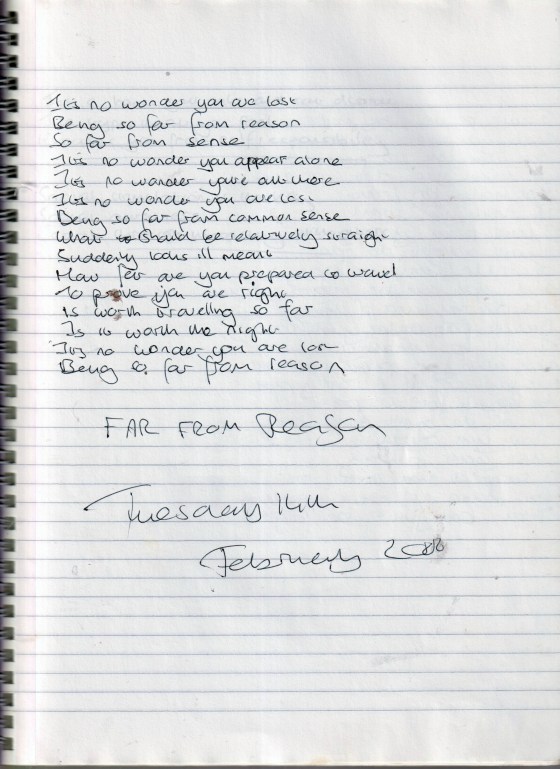 It's no wonder you are lost
Being so far from reason
So far from sense
It's no wonder you appear alone
It's no wonder you're out there
It's no wonder you are lost
Being so far from common sense
What should be relatively straight
Suddenly looks ill meant
How far are you prepared to travel
To prove you are right
Is worth traveling so far
Is it worth the night
It's no wonder you are lost
Being so far from reason
FAR FROM Reason
Tuesday 14th
February